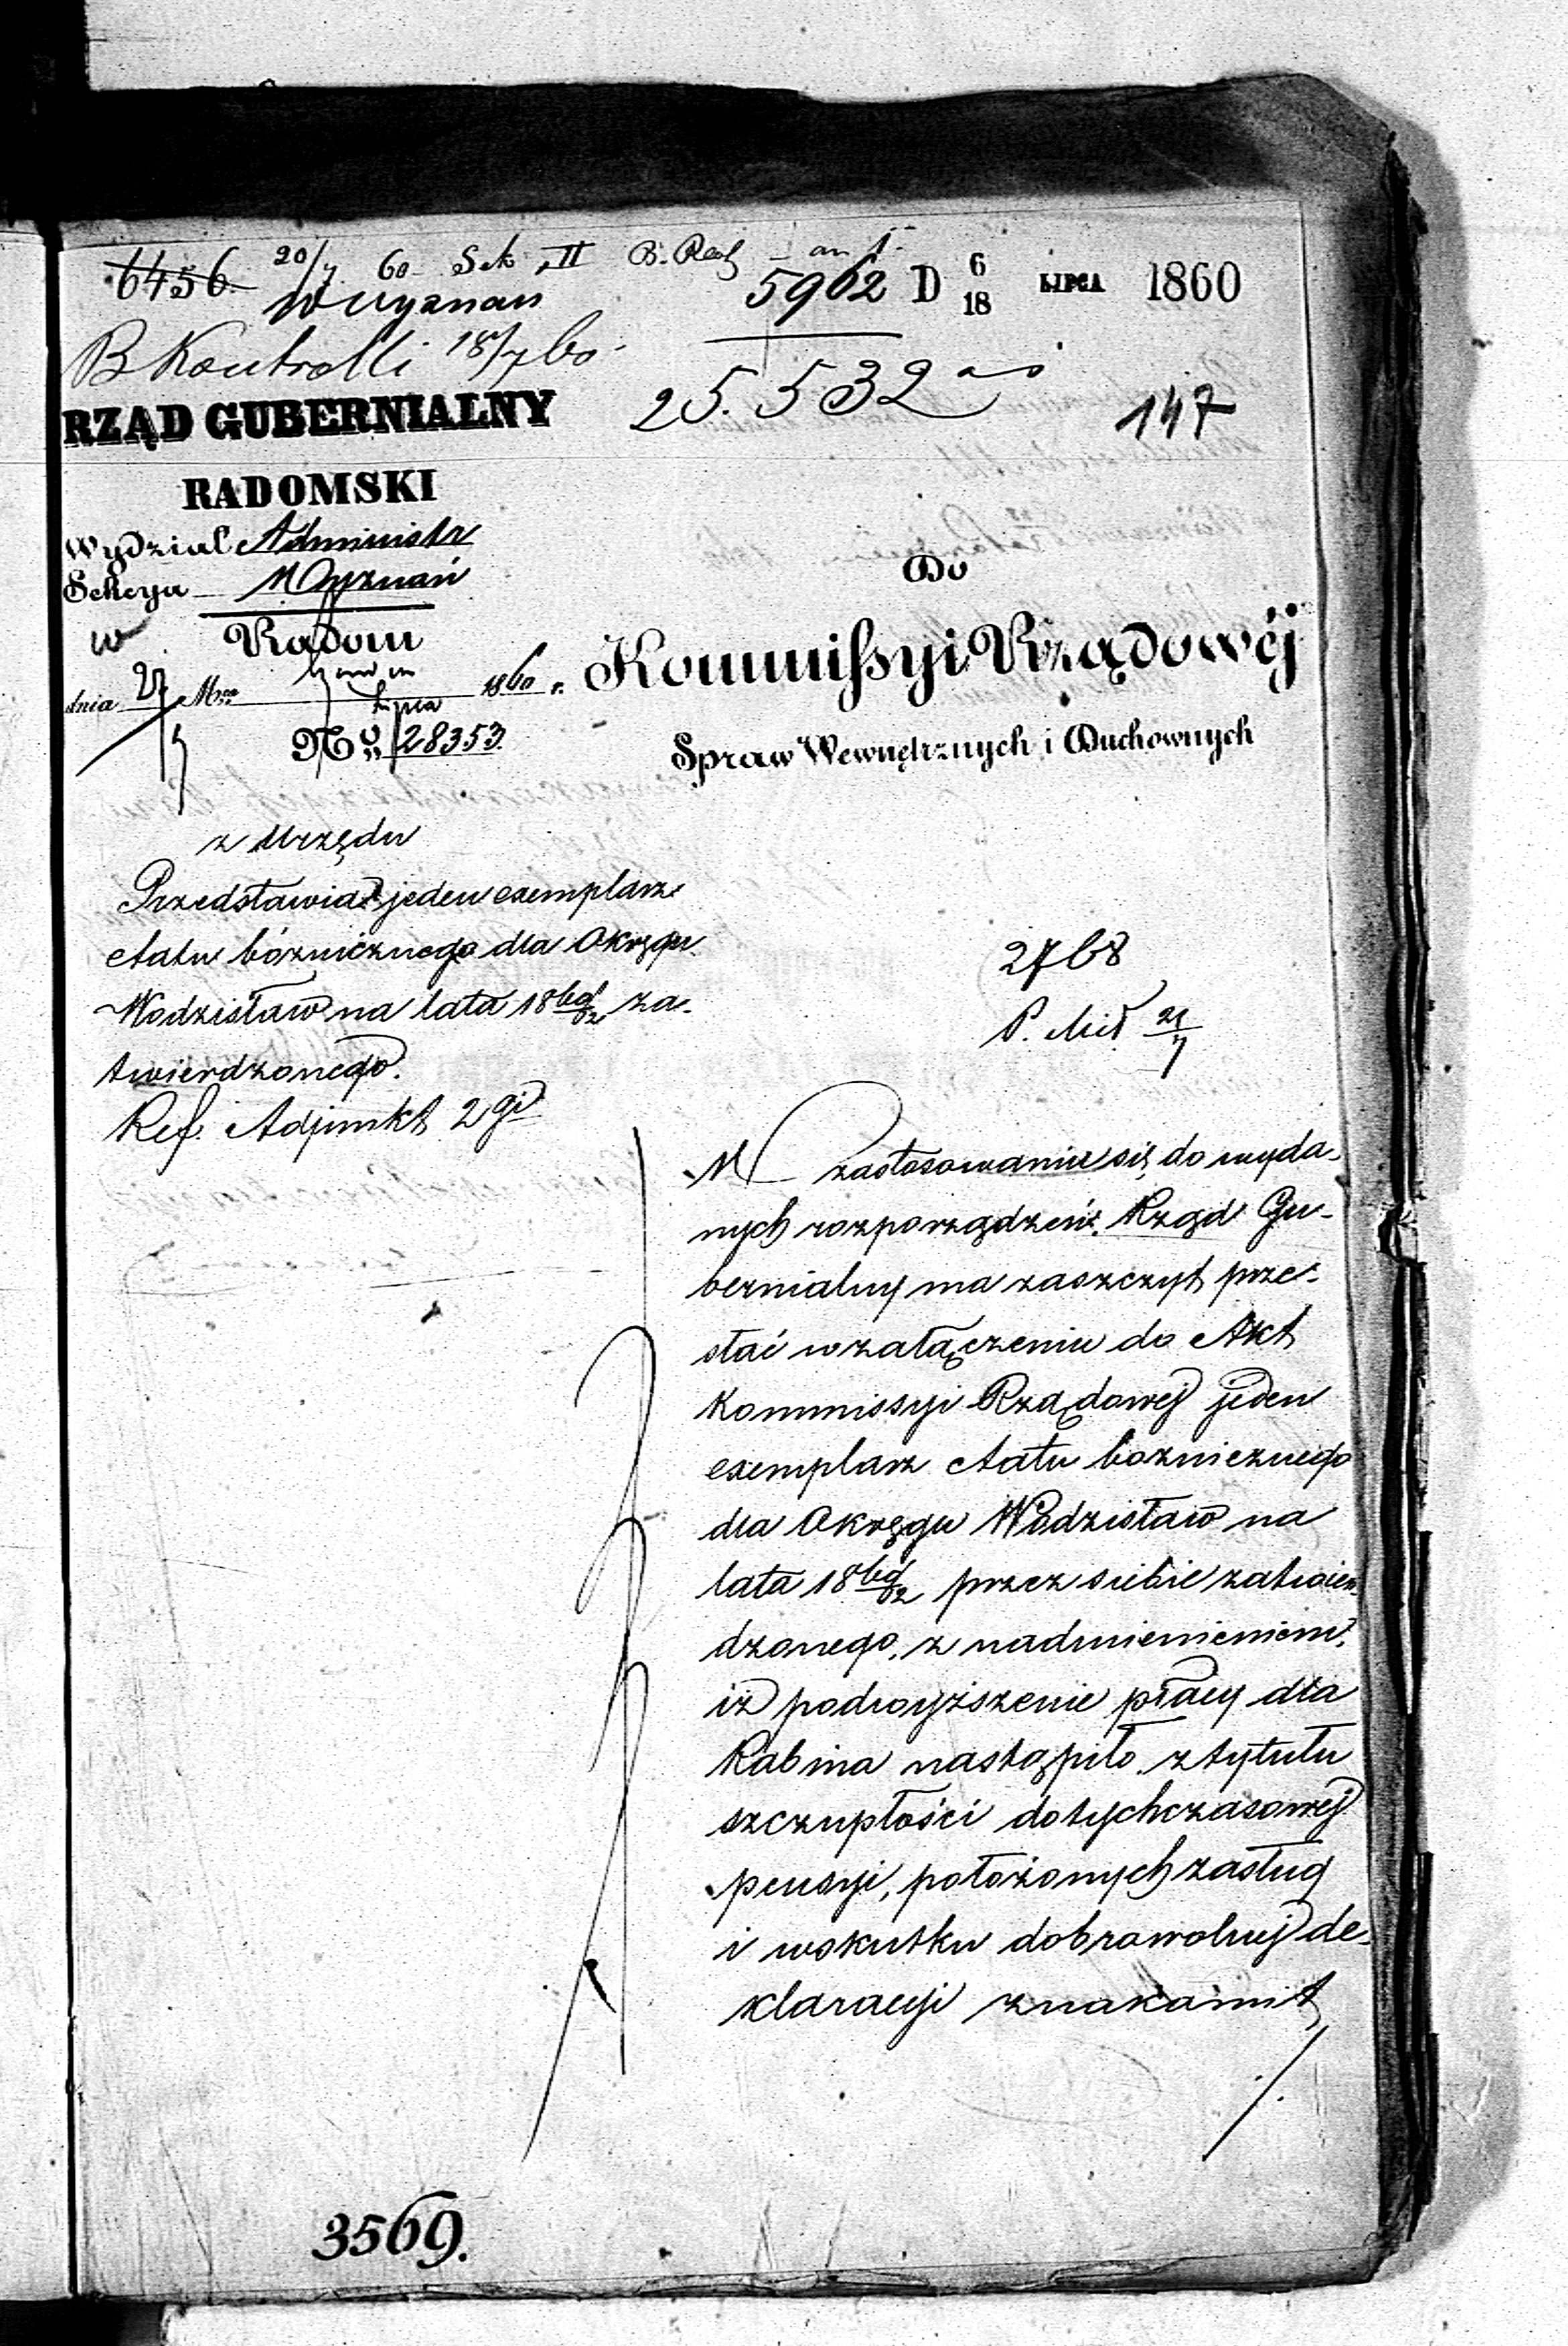 6456 20/7 60 Sek II B. Rad
W Wyznań 5962 D 6/18 LIPCA 1860
B Kontrolli 18/7 60
25.532
147
RZĄD GUBERNIALNY
RADOMSKI
Wydział Administr
Sekcya Wyznań
w Radom
dnia Mca Lipca 1860 r.
No 28353.
Do
Kommissyi Rządowéj
Spraw Wewnętrznych i Duchownych
z Urzędu
Przedstawia jeden exemplarz
etatu bóżnicznego dla Okręgu
Wodzisław na lata 1860/62 za-
twierdzonego.
Ref. Adjunkt 2gi
2768
W zastosowaniu się do wyda-
nych rozporządzeń, Rząd Gu-
bernialny ma zaszczyt prze-
słać w załączeniu do Akt
Kommissyi Rządowej jeden
exemplarz etatu bożnicznego
dla Okręgu Wodzisław na
lata 1860/62 przez siebie zatwier-
dzonego, z nadmienieniem,
iż podwyższenie płacy dla
Rabina nastąpiło z tytułu
szczupłości dotychczasowej
pensyi, położonych zasług
i wskutku dobrowolnej de-
klaracyi znakomit
./.
3569.